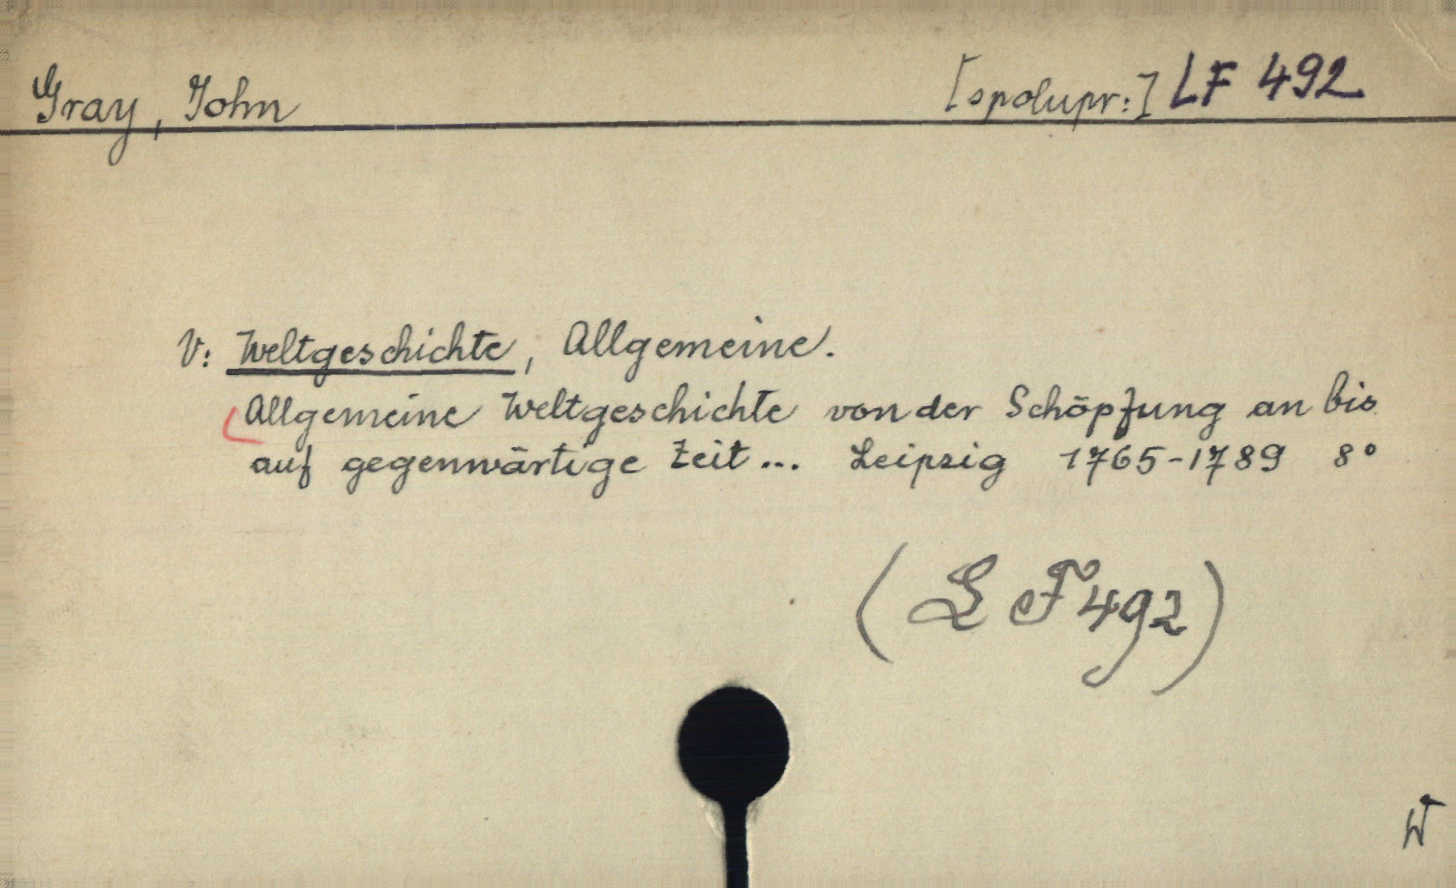 Gray, John [spolupr.:] LF 492
V: Weltgeschichte, Allgemeine.
Allgemeine Weltgeschichte von der Schöpfung an bis
auf gegenwärtige Zeit... Leipzig 1765-1789 8°
(LF 492)